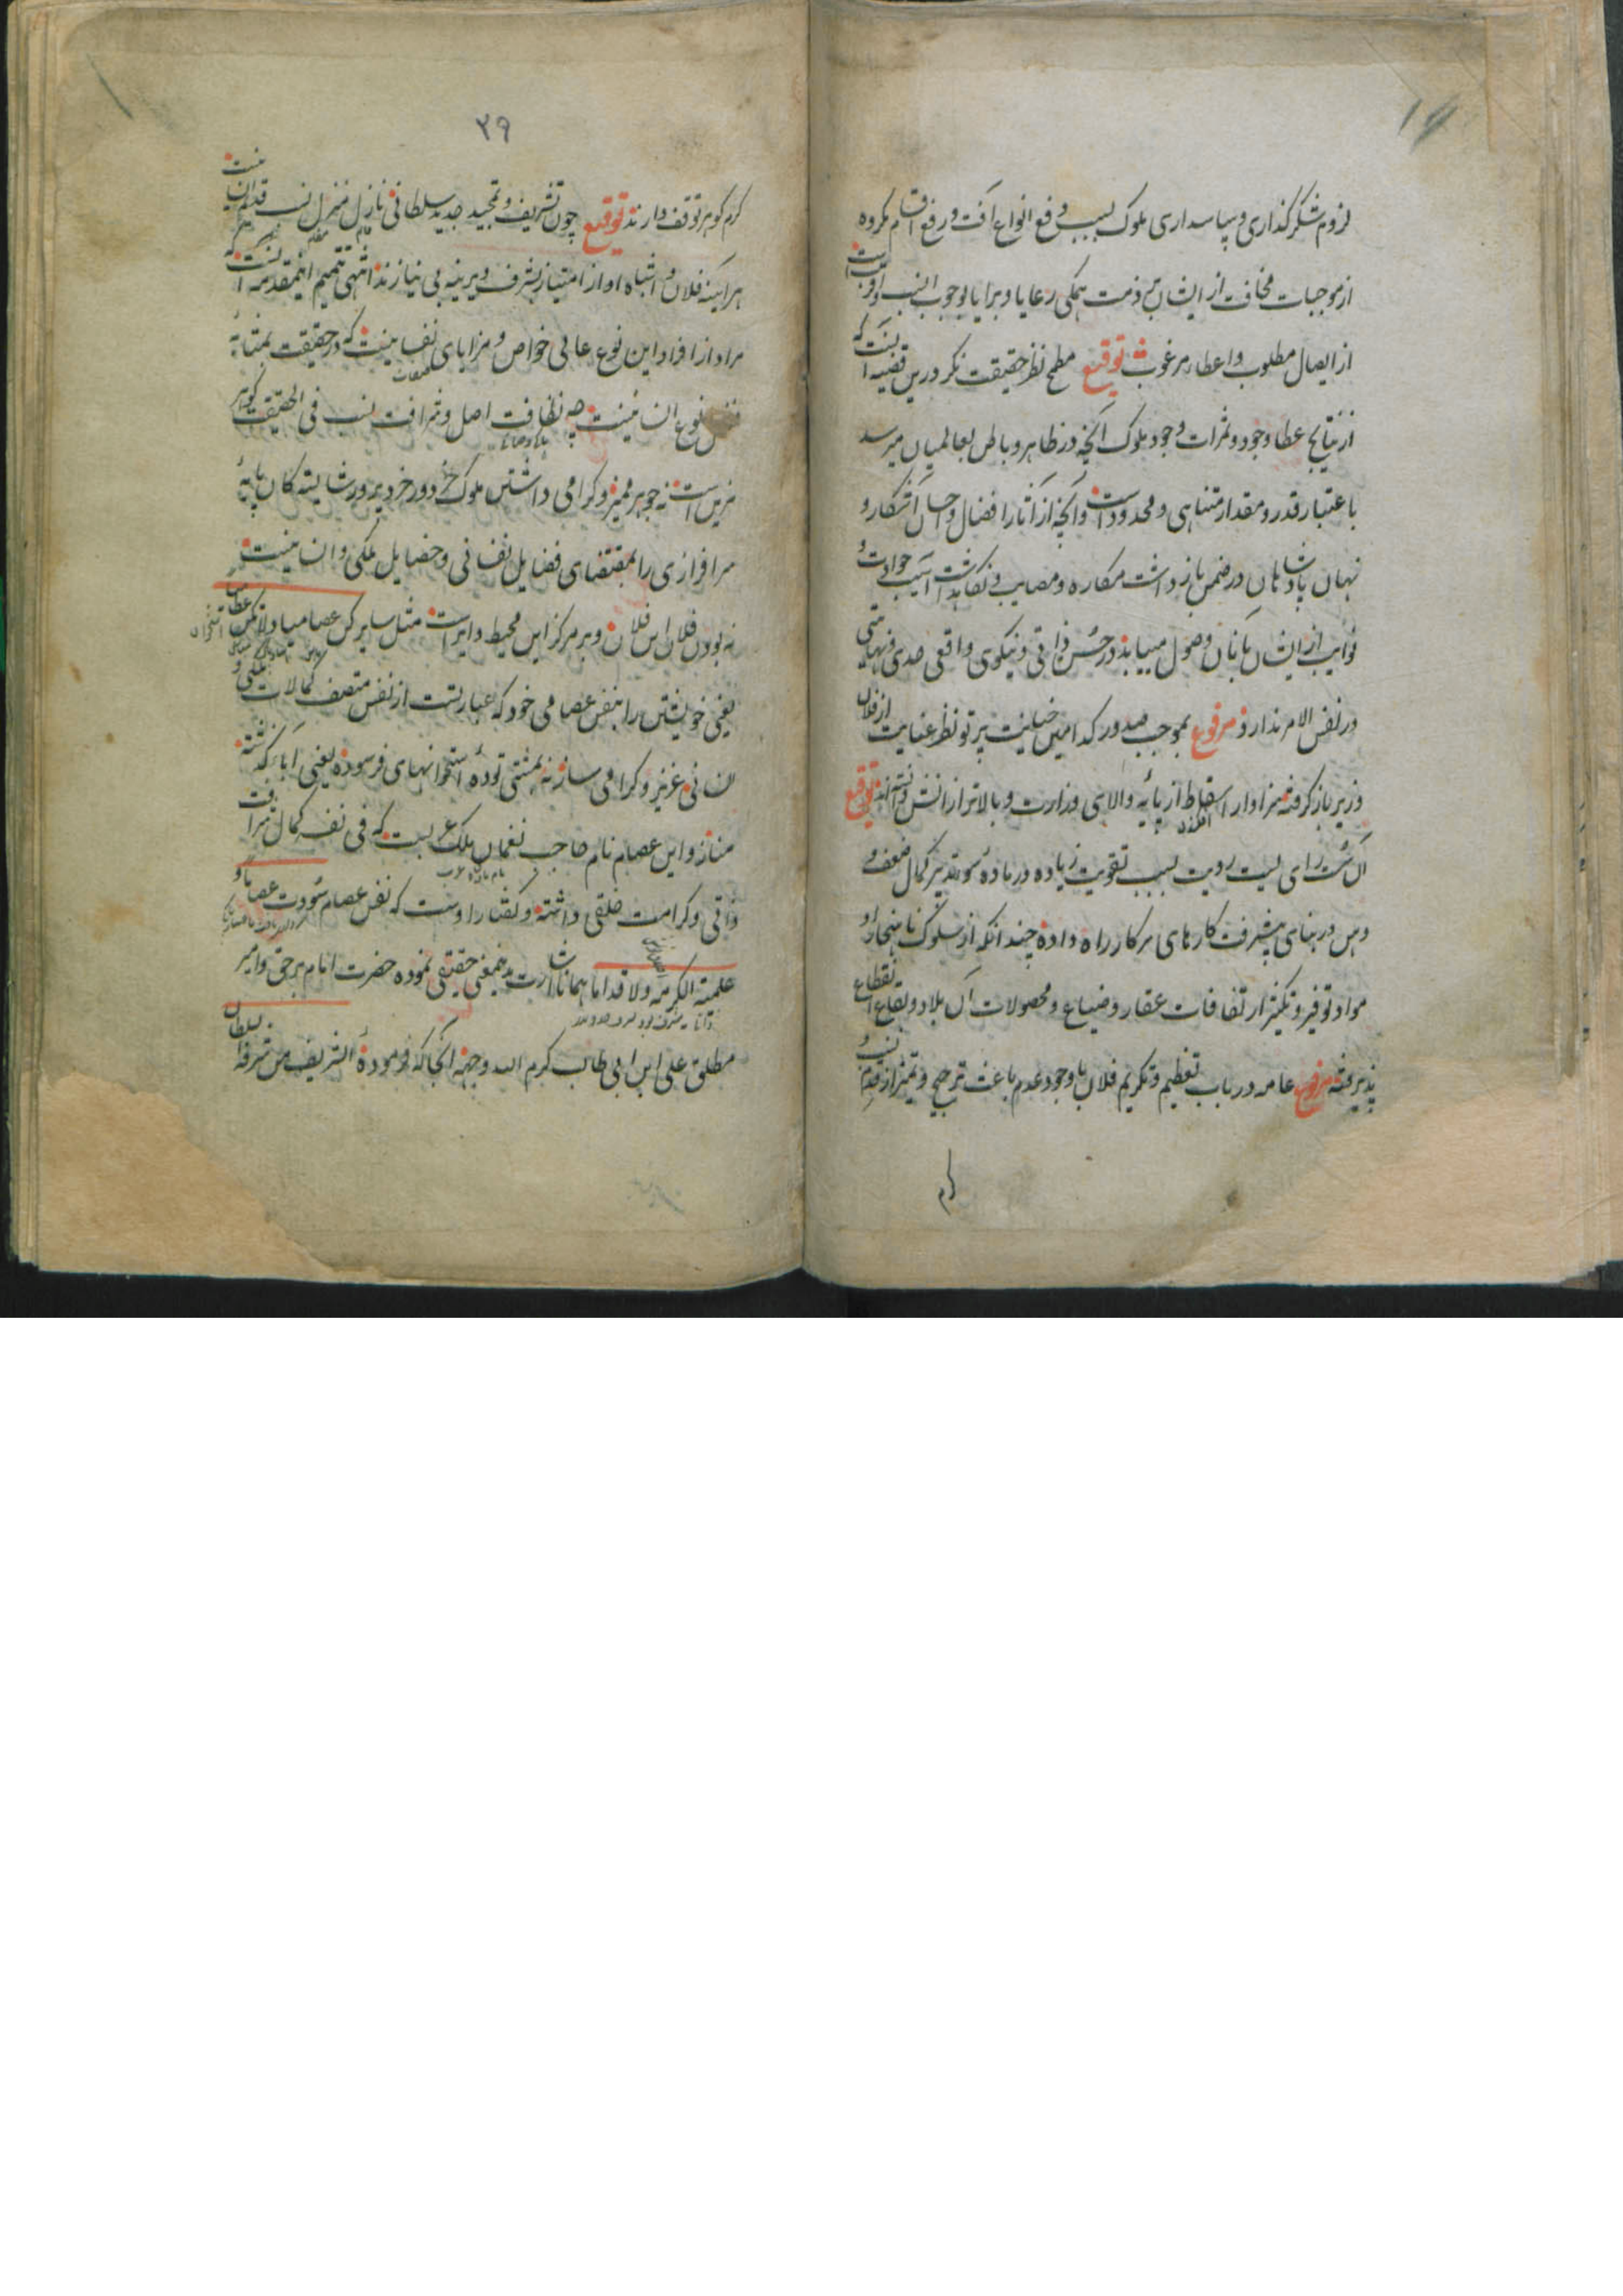 لزوم شکرگذاری و سپاسداری ملوک بسبب دفع انواع آفت و رفع اقسام مکروه
از موجبات مخافت از ایشان بر ذمت همکی رعایا و برایا بوجوب انسب و اقرب است
از ایصال مطلوب و اعطاء مرغوب توقیع مطمح نظر حقیقت نکر درین قضیه آنست که
از نتایج عطا و جود و ثمرات وجود ملوک آنچه در ظاهر و باطن بعالمیان میرسد
باعتبار قدر و مقدار متناهی و محدود است و آنچه از آثار افضال و احسان آشکار و
نهان پادشاهان در ضمن بازداشت مکاره و مصایب و نکاهداشت آسیب حوادث و
نوایب از ایشان بآنان وصول مییابد در حسن ذاتی و نیکوی واقعی حدی و نهایتی
در نفس الامر ندارد مرفوع بموجب صدور کدامین خیانت پرتو نظر عنایت از فلان
وزیر باز کرفته سزاوار اسقاط از پایه والای وزارت و بالاتر از آنش دانسته اند توقیع
آن سست رای لیست رویت بسبب تقویت زیاده در ماده سوء تدبیر کمال ضعف و
وهن در بنای پیشرفت کارهای سرکار راه داده چندانکه از سلوک ناهنجار او
مواد توفیر و تکثیر ارتفاقات عقار و ضیاع و محصولات آن بلاد و بقاع انقطاع
پذیرفته مرفوع عامه در باب تعظیم و تکریم فلان با وجود عدم باعث ترجیح و تمیز از قدم نسب و
کرم
۲۹
کرم کوهر توقف دارند توقیع چون تشریف و تمجید جدید سلطانی نازل منزل نسب قدیم انسانیست
هرآینه فلان و اشباه او از امتیاز بشرف دیرینه بی نیازند انتهی تتمیم اینمقدمه آنست که
مراد از افراد این نوع عالی خواص و مزایای نفسانیست که در حقیقت بمثابه
نوع انسانیست چه نظافت اصل و شرافت نسب فی الحقیقت کوهر
مزین است نه جوهر ممیز و کرامی داشتن ملوک خرد ور خرد پرور شایستکان پایه
سرافرازی را بمقتضای فضایل نفسانی و خصایل ملکی و انسانیست
نه بودن فلان ابن فلان و بر مرکز این محیط دایر است مثل سایر کن عصامیا و لا تکن عظامیا
یعنی خویشتن را بنفس عصامی خود که عبارتست از نفس متصف بکمالات ملکی و
انسانی عزیز و کرامی ساز نه بمشتی توده استخوانهای فرسوده یعنی آباء کذشته
مناز و این عصام نام حاجب نعمان ملک عربست که فی نفسه کمال شرافت
ذاتی و کرامت خلقی داشته و کفتار اوست که نفس عصام سودت عصاما و
علمته الکر و الاقداما همانا اشارت بدینمعنی حقیقی نموده حضرت امام برحق و امیر
مطلق علی ابن ابی طالب کرم الله وجهه آنجا که فرموده الشریف من شرفه السلطان